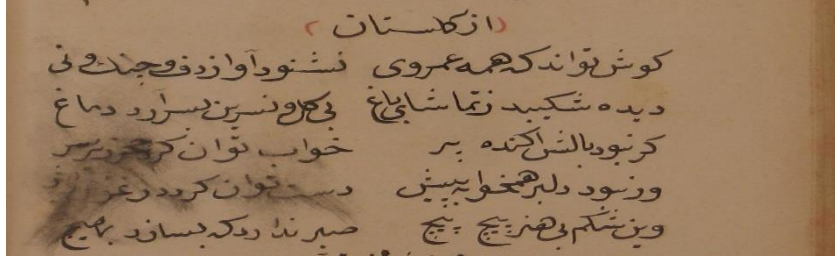 از کلستان
کوش تواند که همه عمر وی نشنود آواز دف و جنك و نی
دیده شکیبد ز تماشای باغ بی کل و نسرین بسر آرد دماغ
کر نبود بالش اکنده پر خواب توان کرد زیر سر
ور نبود دلبر همخوابه پیش دست توان کرد در
وین شکم بی هنر پیچ پیچ صبر ندارد که بسازد بهیچ